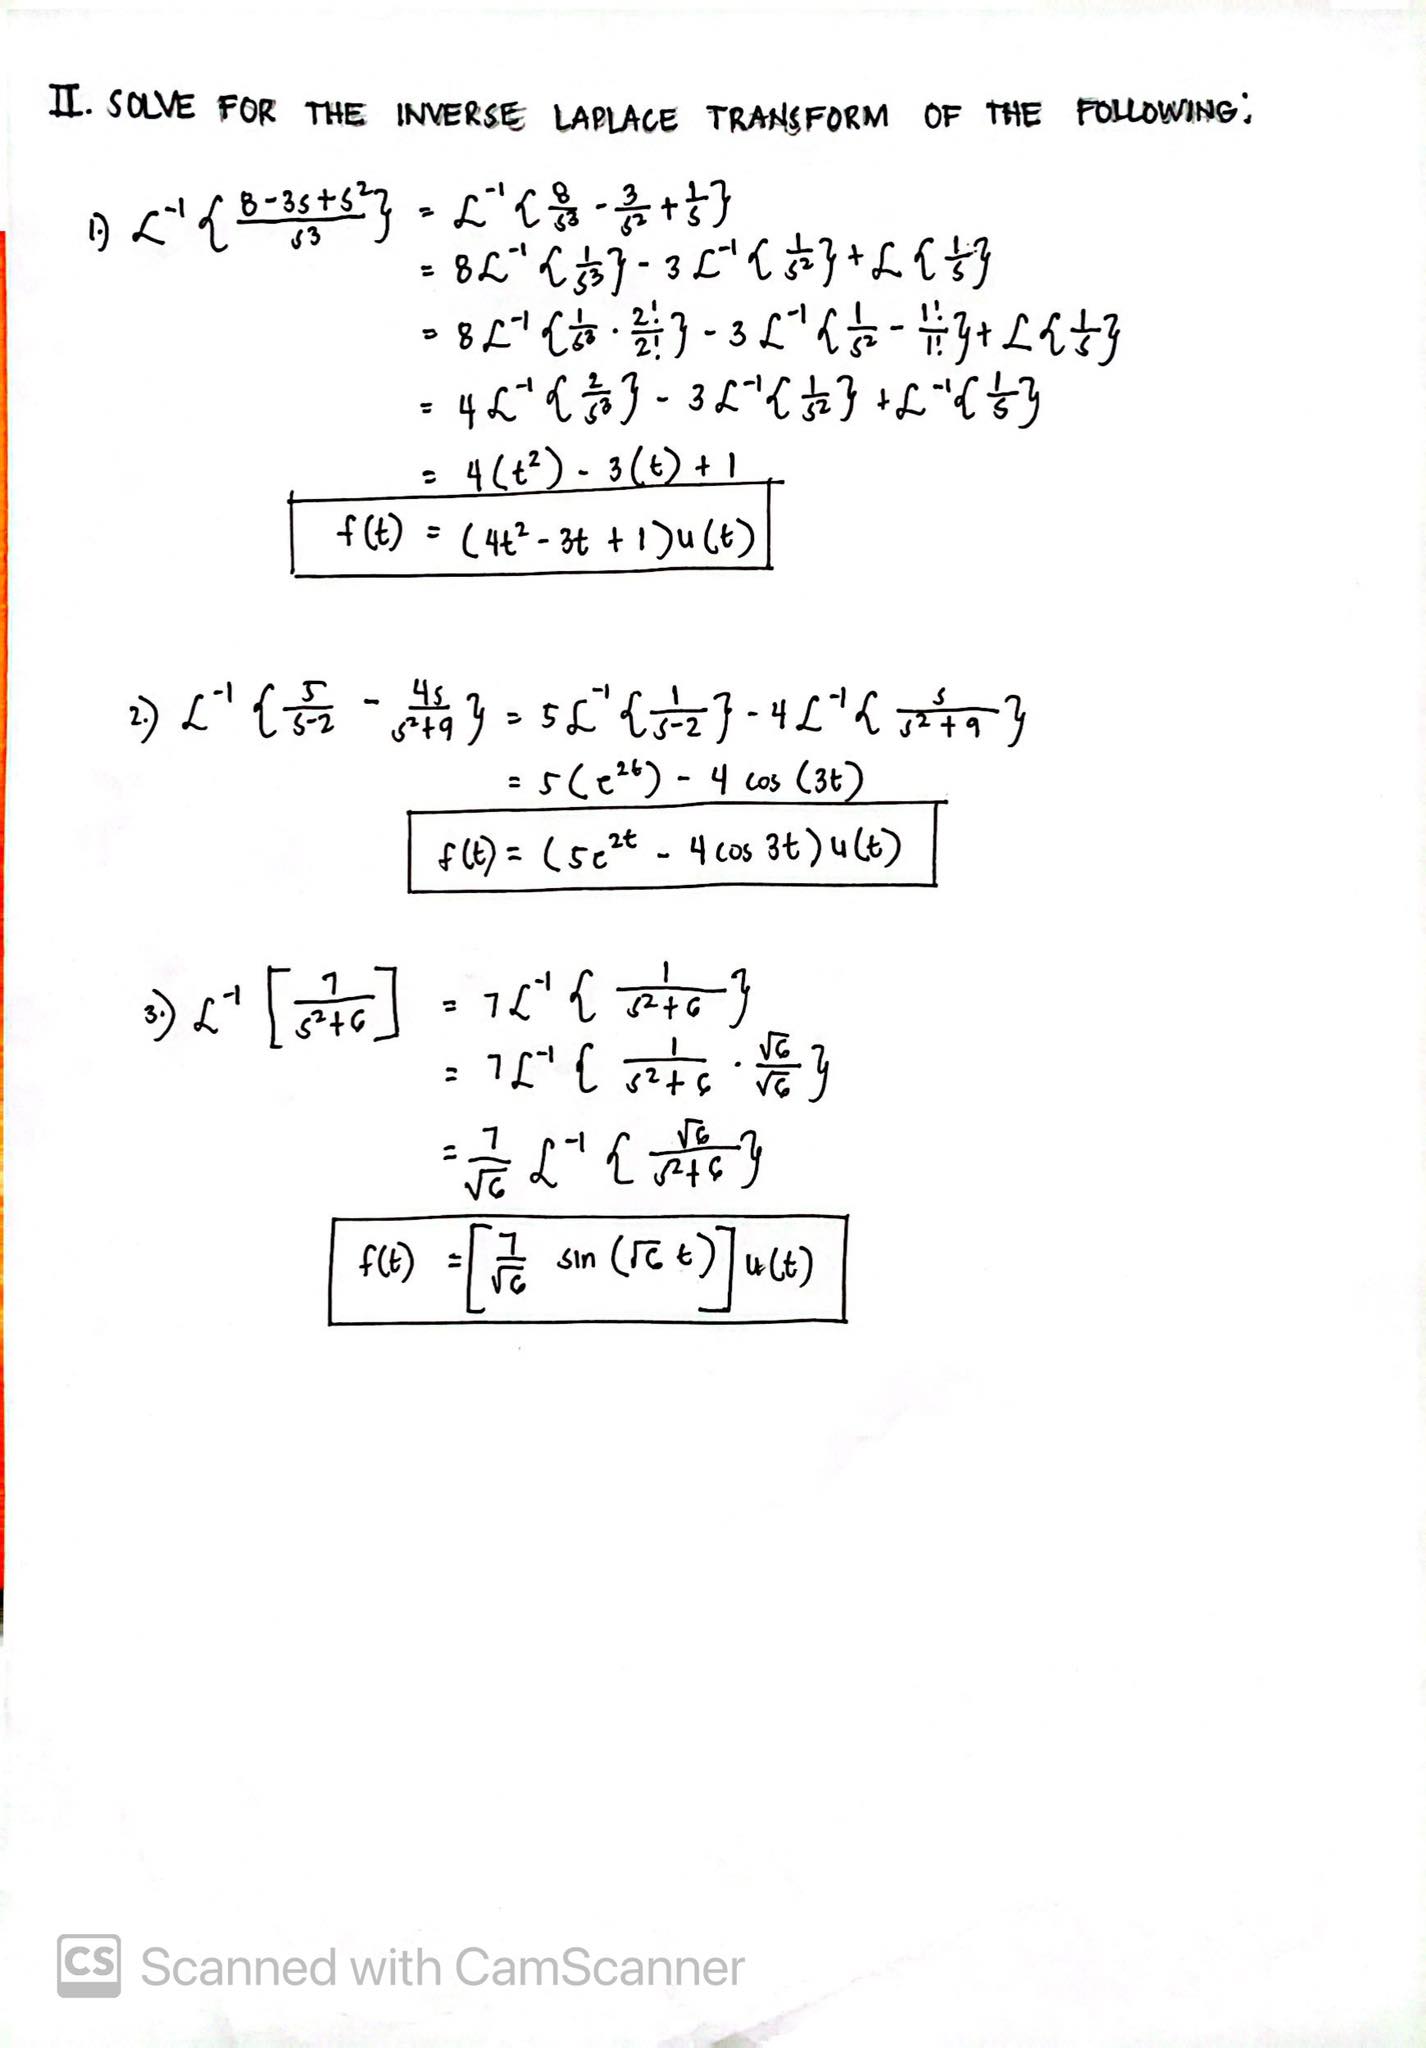 II. SOLVE FOR THE INVERSE LAPLACE TRANSFORM OF THE FOLLOWING:
1.) ℒ⁻¹ { (8-3s+s²)/s³ } = ℒ⁻¹ { 8/s³ - 3/s² + 1/s }
= 8ℒ⁻¹ { 1/s³ } - 3 ℒ⁻¹ { 1/s² } + ℒ { 1/s }
= 8ℒ⁻¹ { 1/s³ · 2!/2! } - 3 ℒ⁻¹ { 1/s² - 1!/1! } + ℒ { 1/s }
= 4ℒ⁻¹ { 2/s³ } - 3ℒ⁻¹ { 1/s² } + ℒ⁻¹ { 1/s }
= 4(t²) - 3(t) + 1
f(t) = (4t² - 3t + 1)u(t)
2.) ℒ⁻¹ { 5/(s-2) - 4s/(s²+9) } = 5ℒ⁻¹ { 1/(s-2) } - 4ℒ⁻¹ { s/(s²+9) }
= 5(e²ᵗ) - 4 cos (3t)
f(t) = (5e²ᵗ - 4 cos 3t)u(t)
3.) ℒ⁻¹ [ 7/(s²+6) ] = 7ℒ⁻¹ { 1/(s²+6) }
= 7ℒ⁻¹ { 1/(s²+6) · √6/√6 }
= 7/√6 ℒ⁻¹ { √6/(s²+6) }
f(t) = [ 7/√6 sin (√6 t) ] u(t)
CS Scanned with CamScanner